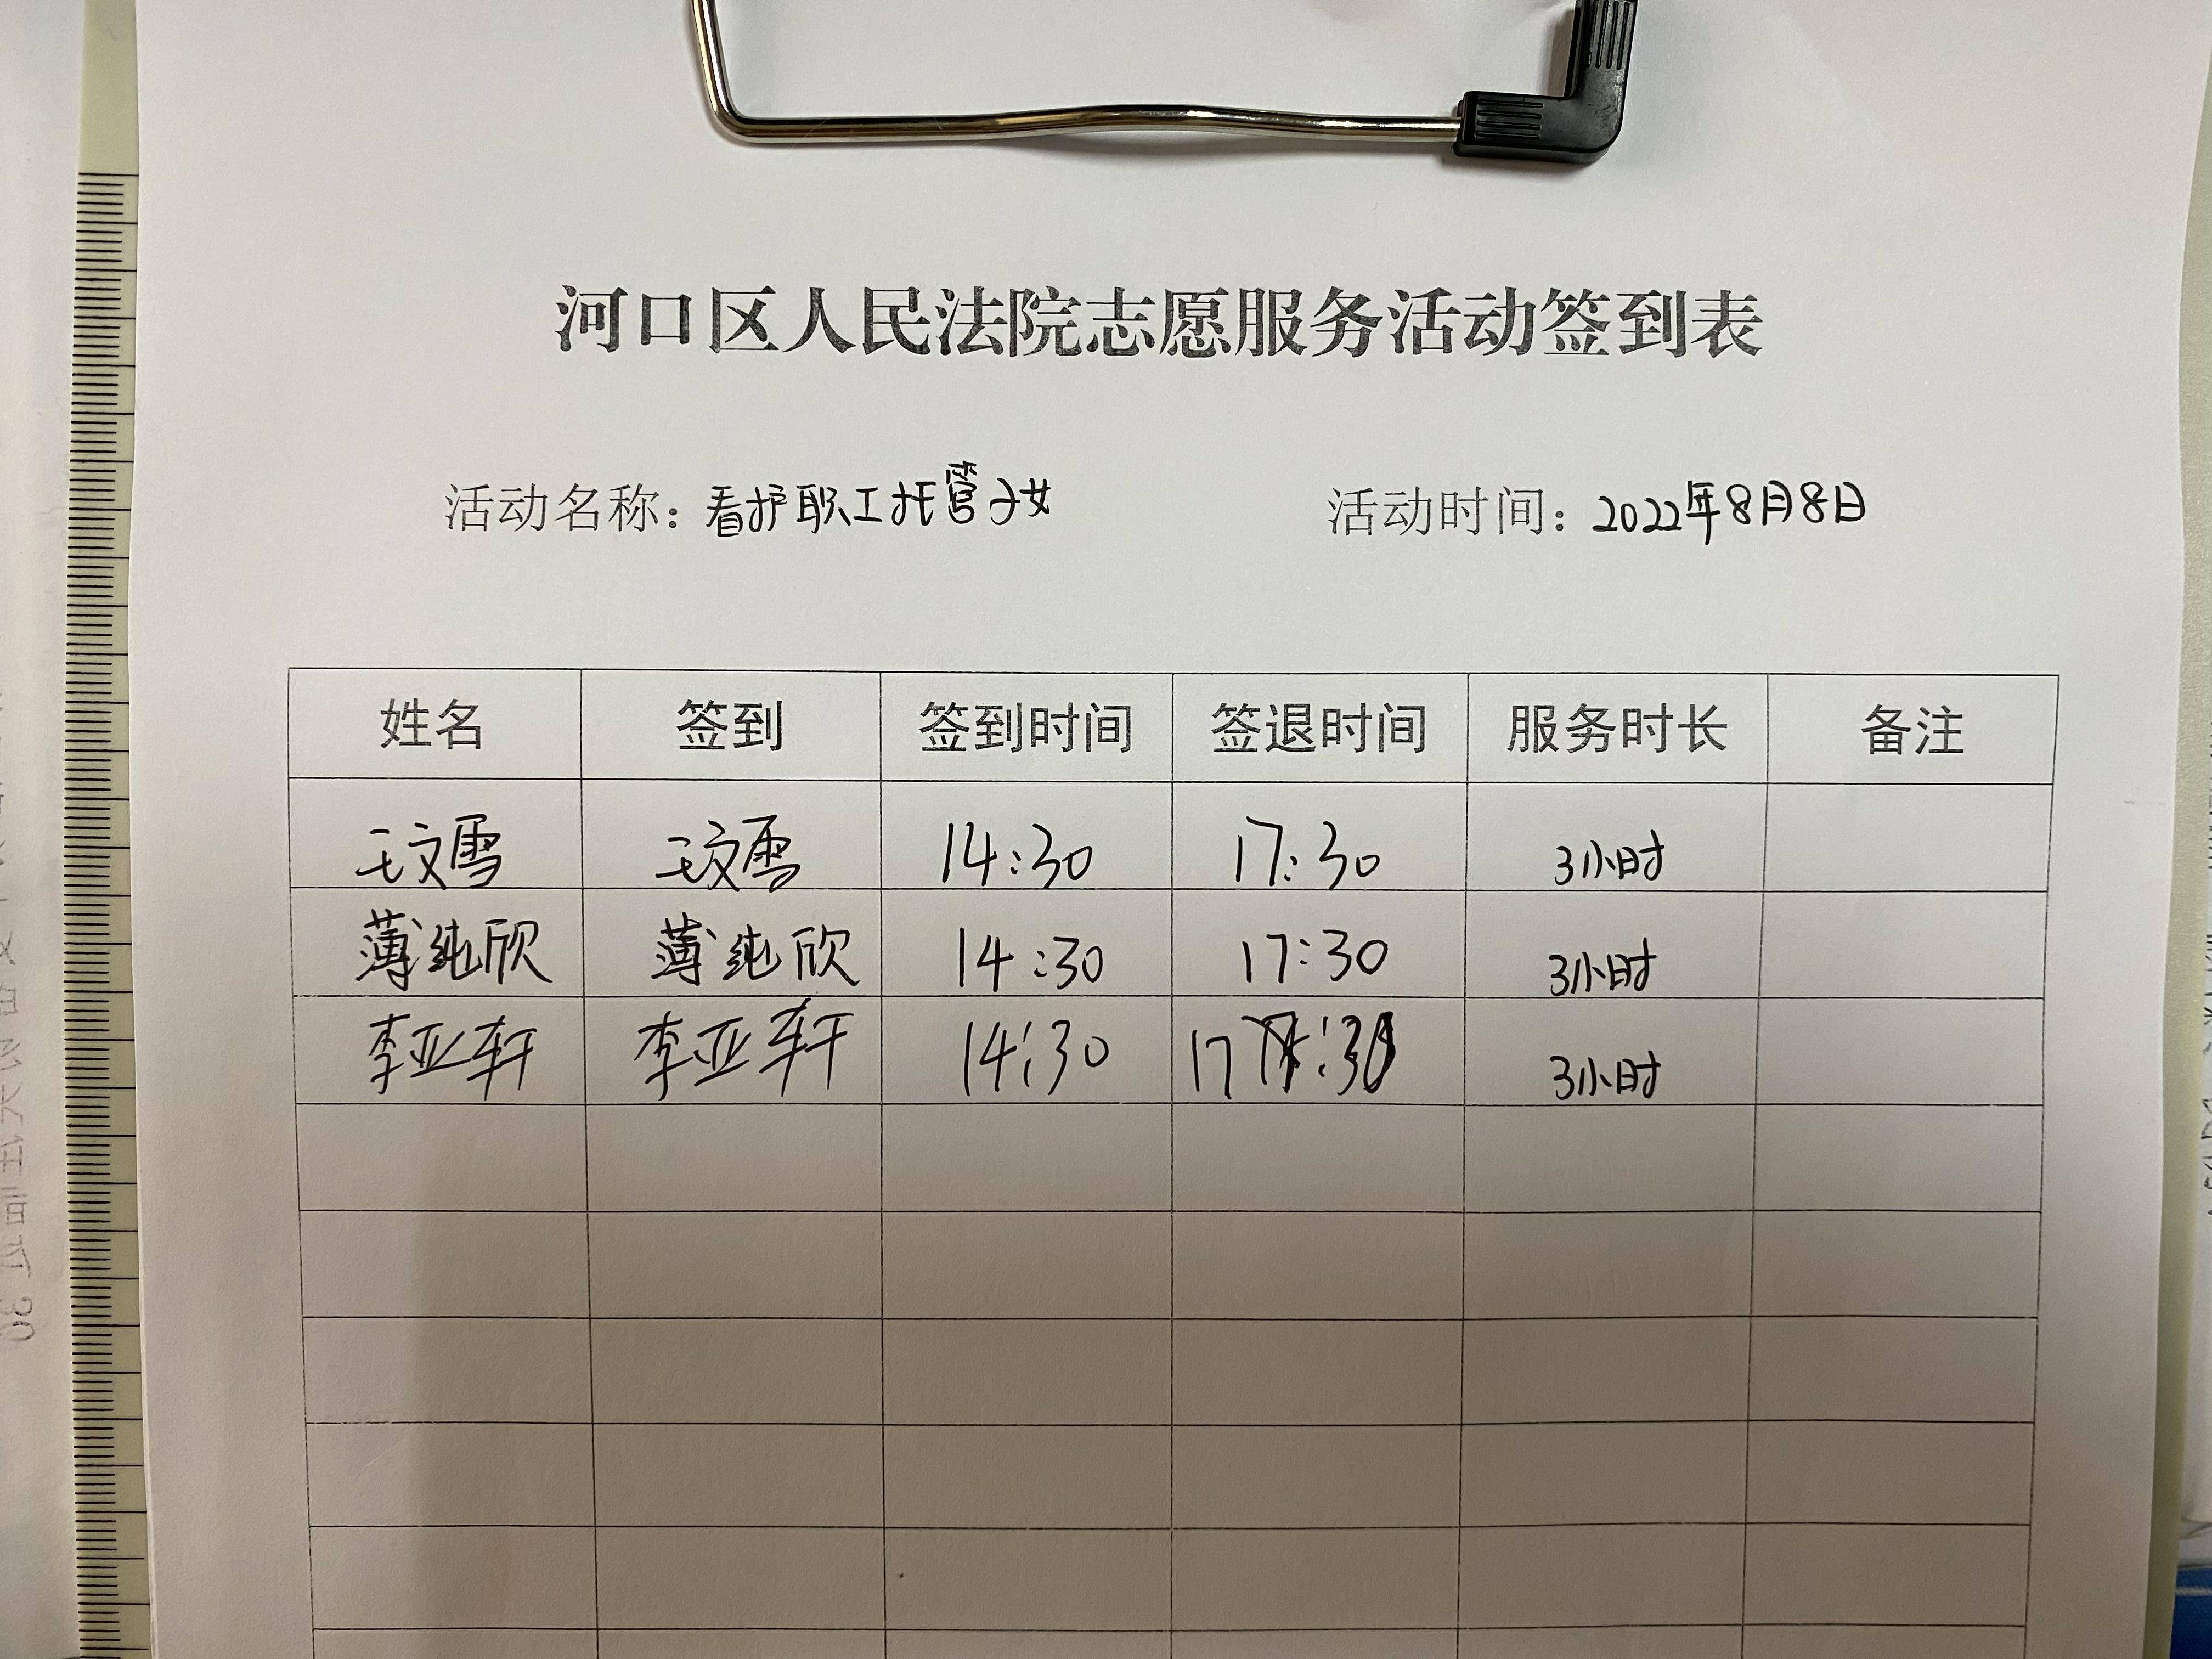 河口区人民法院志愿服务活动签到表
活动名称：看护职工托管子女 活动时间：2022年8月8日
姓名 签到 签到时间 签退时间 服务时长 备注
王文雪 王文雪 14:30 17:30 3小时
薄纯欣 薄纯欣 14:30 17:30 3小时
李亚轩 李亚轩 14:30 17:30 3小时